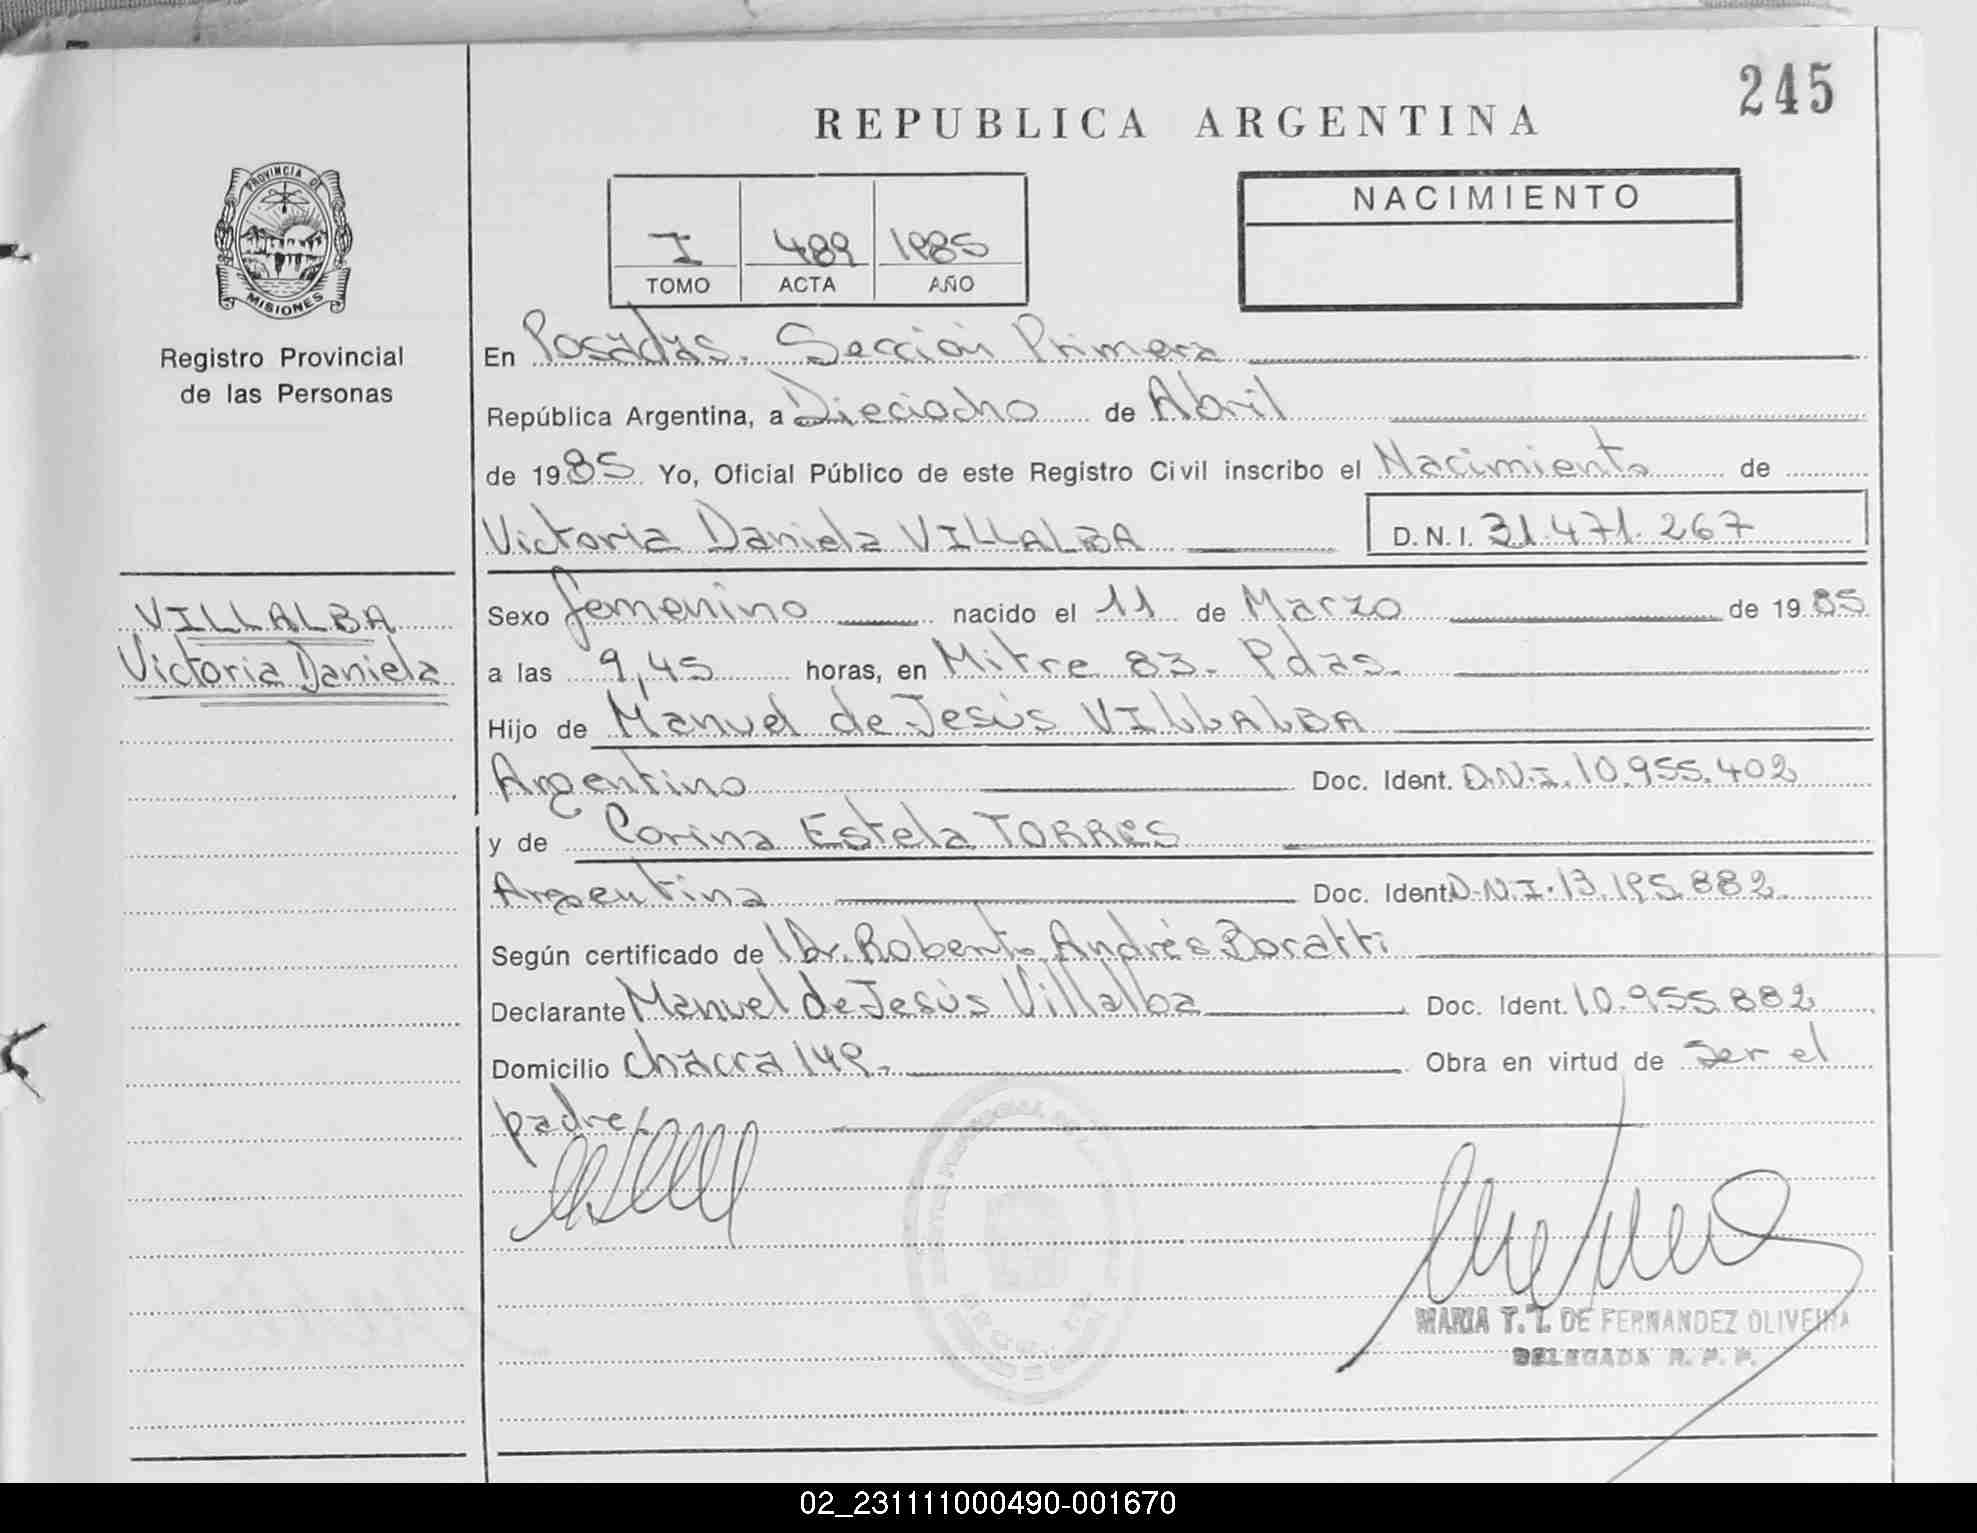 245
REPUBLICA ARGENTINA
PROVINCIA DE
MISIONES
Registro Provincial
de las Personas
I 489 1985
TOMO ACTA AÑO
NACIMIENTO
En Posadas. Sección Primera
República Argentina, a Dieciocho de Abril
de 1985 Yo, Oficial Público de este Registro Civil inscribo el Nacimiento de
Victoria Daniela VILLALBA D.N.I. 31.471.267
VILLALBA
Victoria Daniela
Sexo femenino nacido el 11 de Marzo de 1985
a las 9,45 horas, en Mitre 83- Pdas.
Hijo de Manuel de Jesús VILLALBA
Argentino Doc. Ident. D.N.I. 10.955.402
y de Corina Estela TORRES
Argentina Doc. Ident. D.N.I. 13.195.882
Según certificado de Dr. Roberto Andrés Boratti
Declarante Manuel de Jesús Villalba Doc. Ident. 10.955.882
Domicilio chacra 149. Obra en virtud de Ser el
padre
MARIA T. T. DE FERNANDEZ OLIVEIRA
DELEGADA R. P. P.
02_231111000490-001670